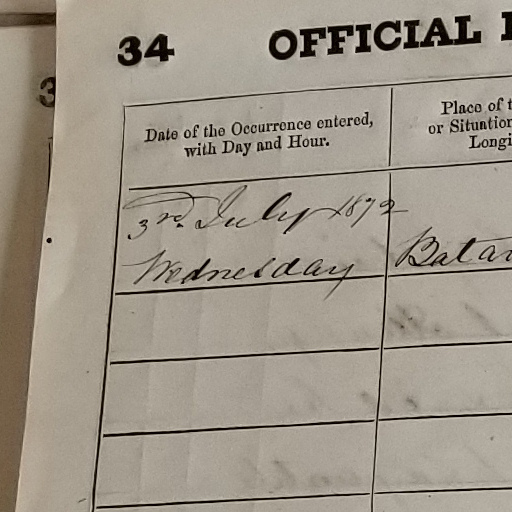 34 OFFICIAL
Date of the Occurrence entered,
with Day and Hour.
Place of
or Situation
3rd. July 1872
Wednesday